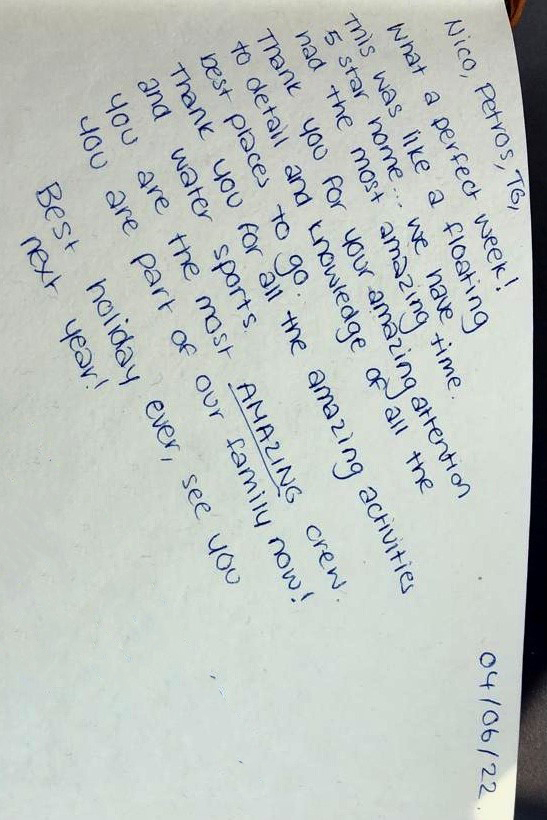 04/06/22.
Nico, Petros, TG,
What a perfect week!
This was like a floating
5 star home... we have
had the most amazing time.
Thank you for your amazing attention
to detail and knowledge of all the
best places to go.
Thank you for all the amazing activities
and water sports.
You are the most AMAZING crew.
You are part of our family now!
Best holiday ever, see you
next year!